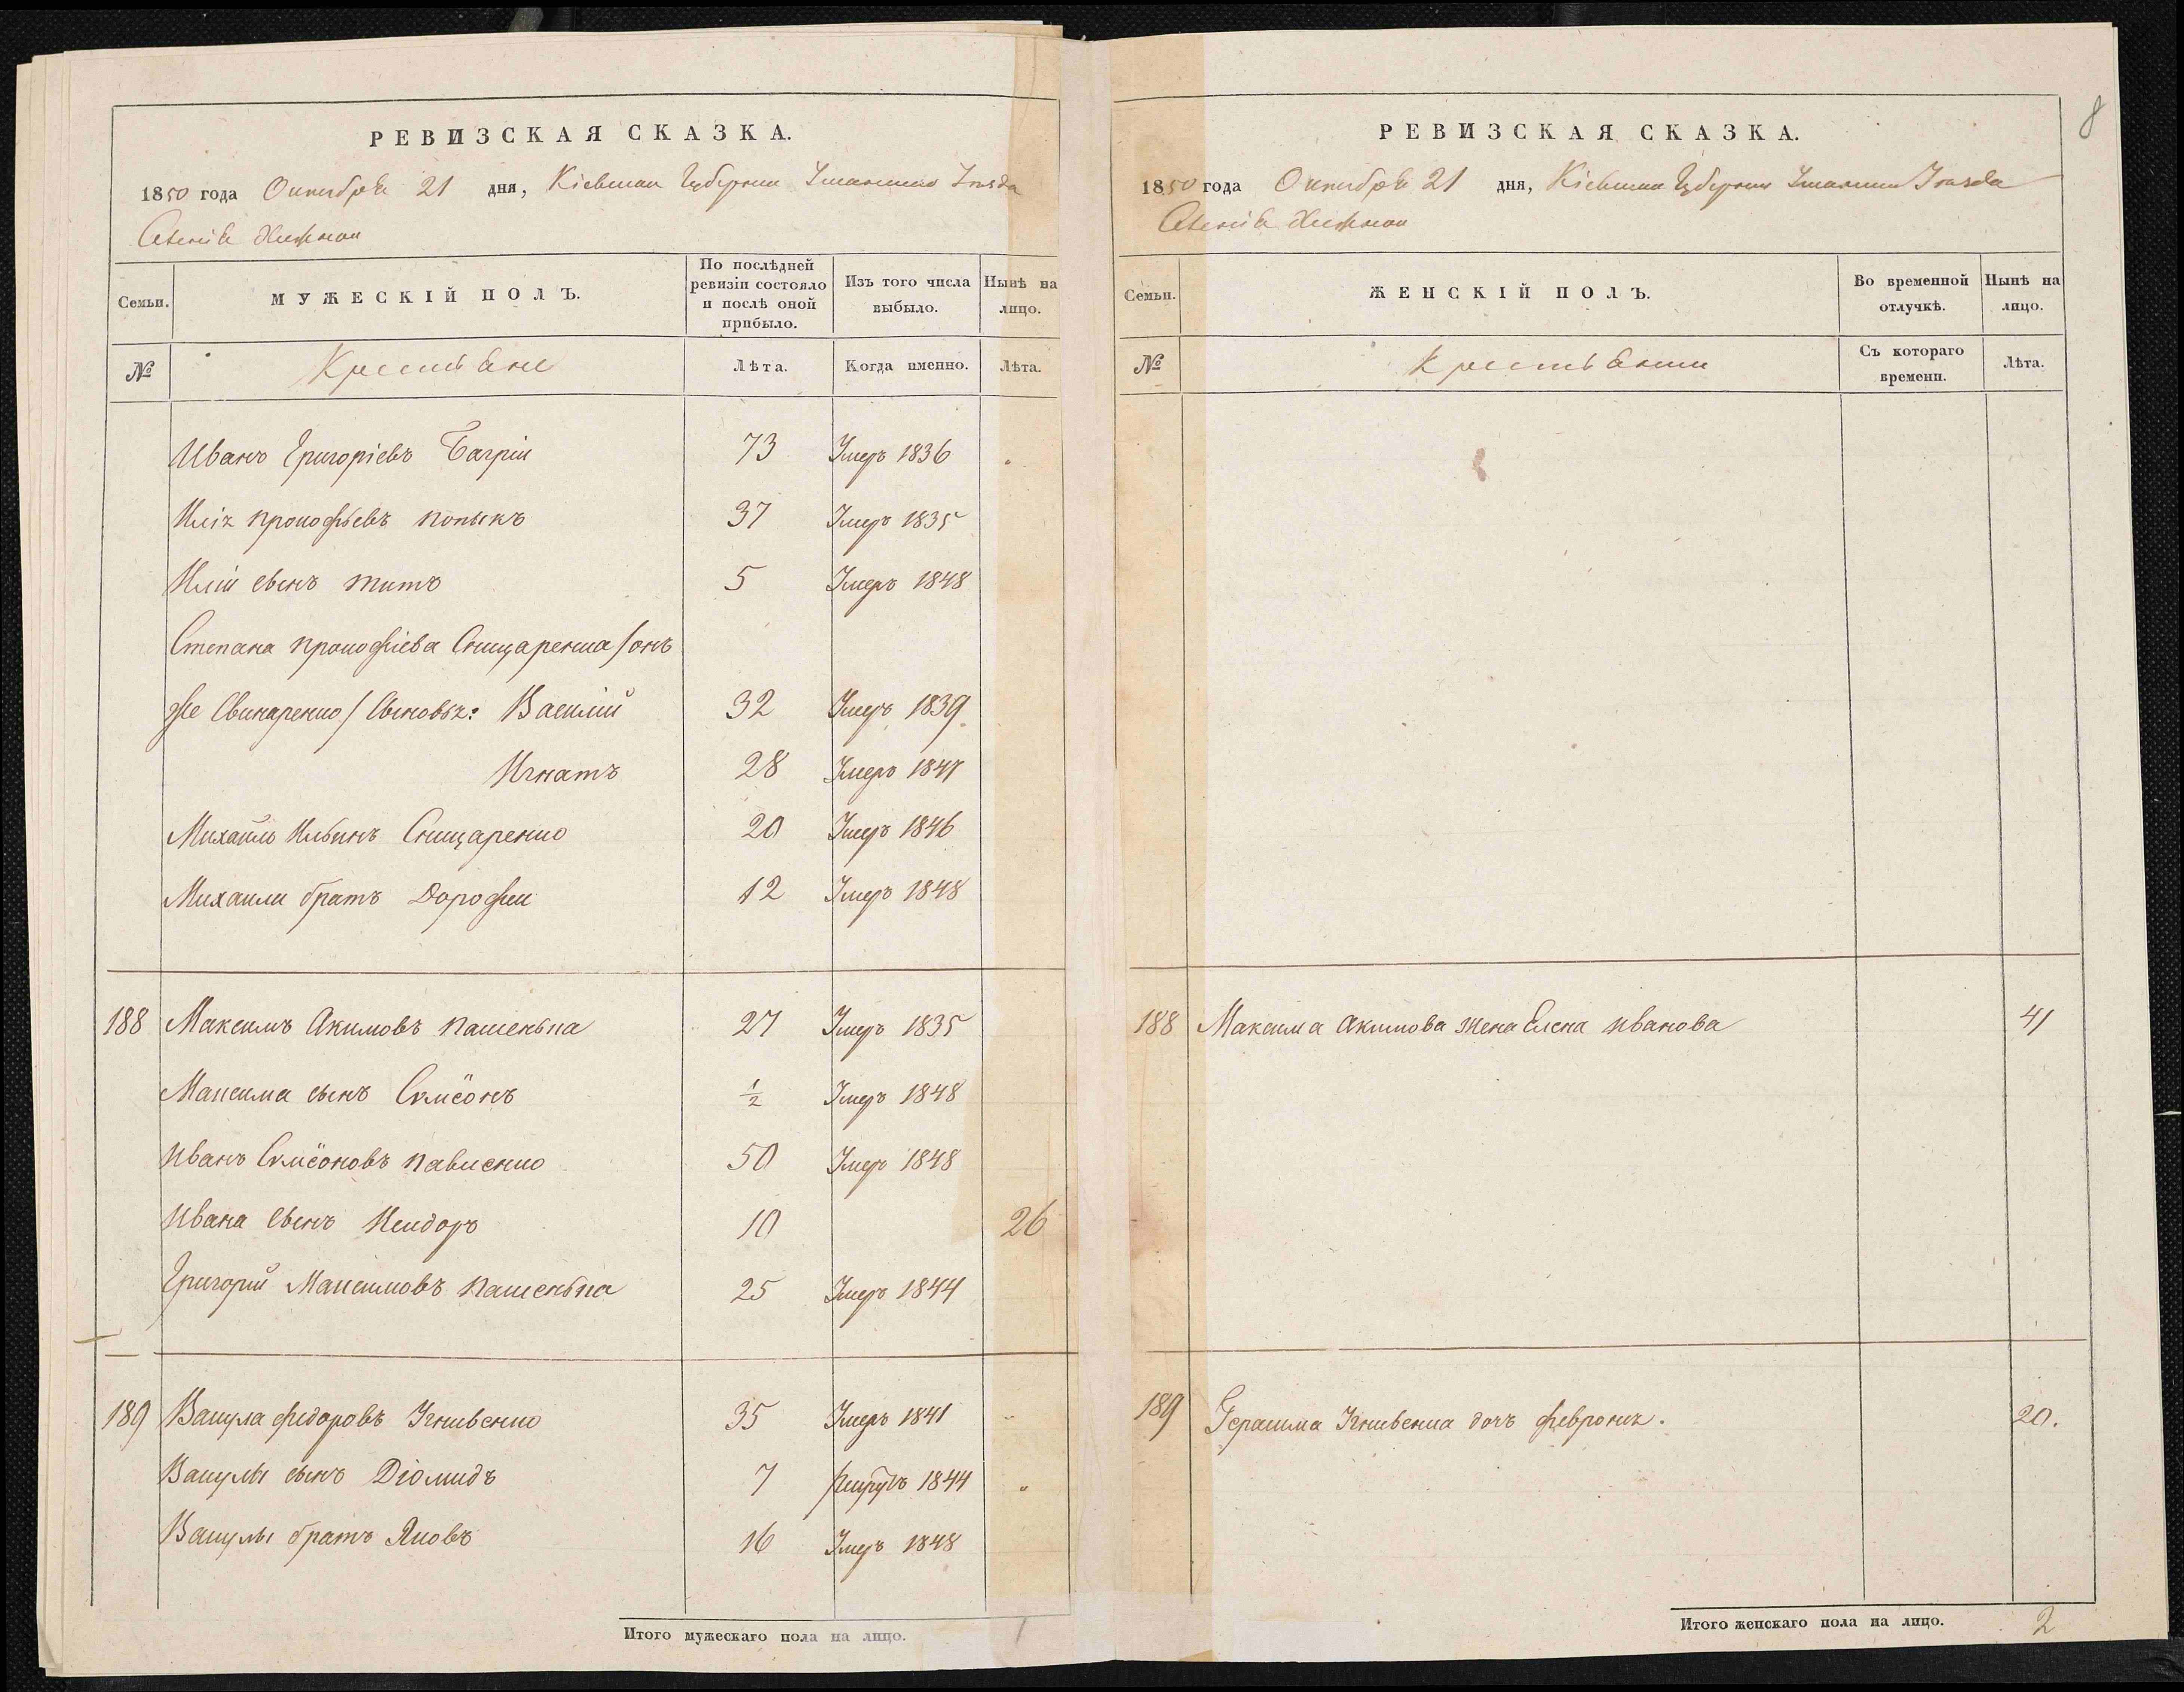 8
РЕВИЗСКАЯ СКАЗКА.
1850 года Октября 21 дня, Кіевской Губерніи Уманскаго Уезда
РЕВИЗСКАЯ СКАЗКА.
1850 года Октября 21 дня, Кіевской Губерніи Уманскаго Уезда
Семьи.
МУЖЕСКІЙ ПОЛЪ.
По послѣдней ревизіи состояло и послѣ оной прибыло.
Изъ того числа выбыло.
Нынѣ на лицо.
№
Крестьяне
Лѣта.
Когда именно.
Лѣта.
Иванъ Григоріевъ Багрій 73 Умеръ 1836
Илія Прокофьевъ Попыкъ 37 Умеръ 1835
Иліи сынъ Титъ 5 Умеръ 1848
Степана Прокофіева Снищаренка /онъ
же Свинаренко/ Сыновья: Василій 32 Умеръ 1839
Игнатъ 28 Умеръ 1847
Михайло Ильинъ Снищаренко 20 Умеръ 1846
Михаила братъ Дорофій 12 Умеръ 1848
188 Максимъ Акимовъ 27 Умеръ 1835
Максима сынъ Семіонъ 1/2 Умеръ 1848
Иванъ Семіоновъ Павленко 50 Умеръ 1848
Ивана сынъ Исидоръ 10 26
Григорій Максимовъ 25 Умеръ 1844
189 Вакула Федоровъ Угнивенко 35 Умеръ 1841
Вакулы сынъ Діомидъ 7 1844
Вакулы братъ Яковъ 16 Умеръ 1848
Итого мужескаго пола на лицо. 1
Семьи.
ЖЕНСКІЙ ПОЛЪ.
Во временной отлучкѣ.
Нынѣ на лицо.
№
Крестьянки
Съ котораго времени.
Лѣта.
188 Максима Акимова жена Елена Иванова 41
189 Герасима Угнивенка дочь Февронія. 20.
Итого женскаго пола на лицо. 2